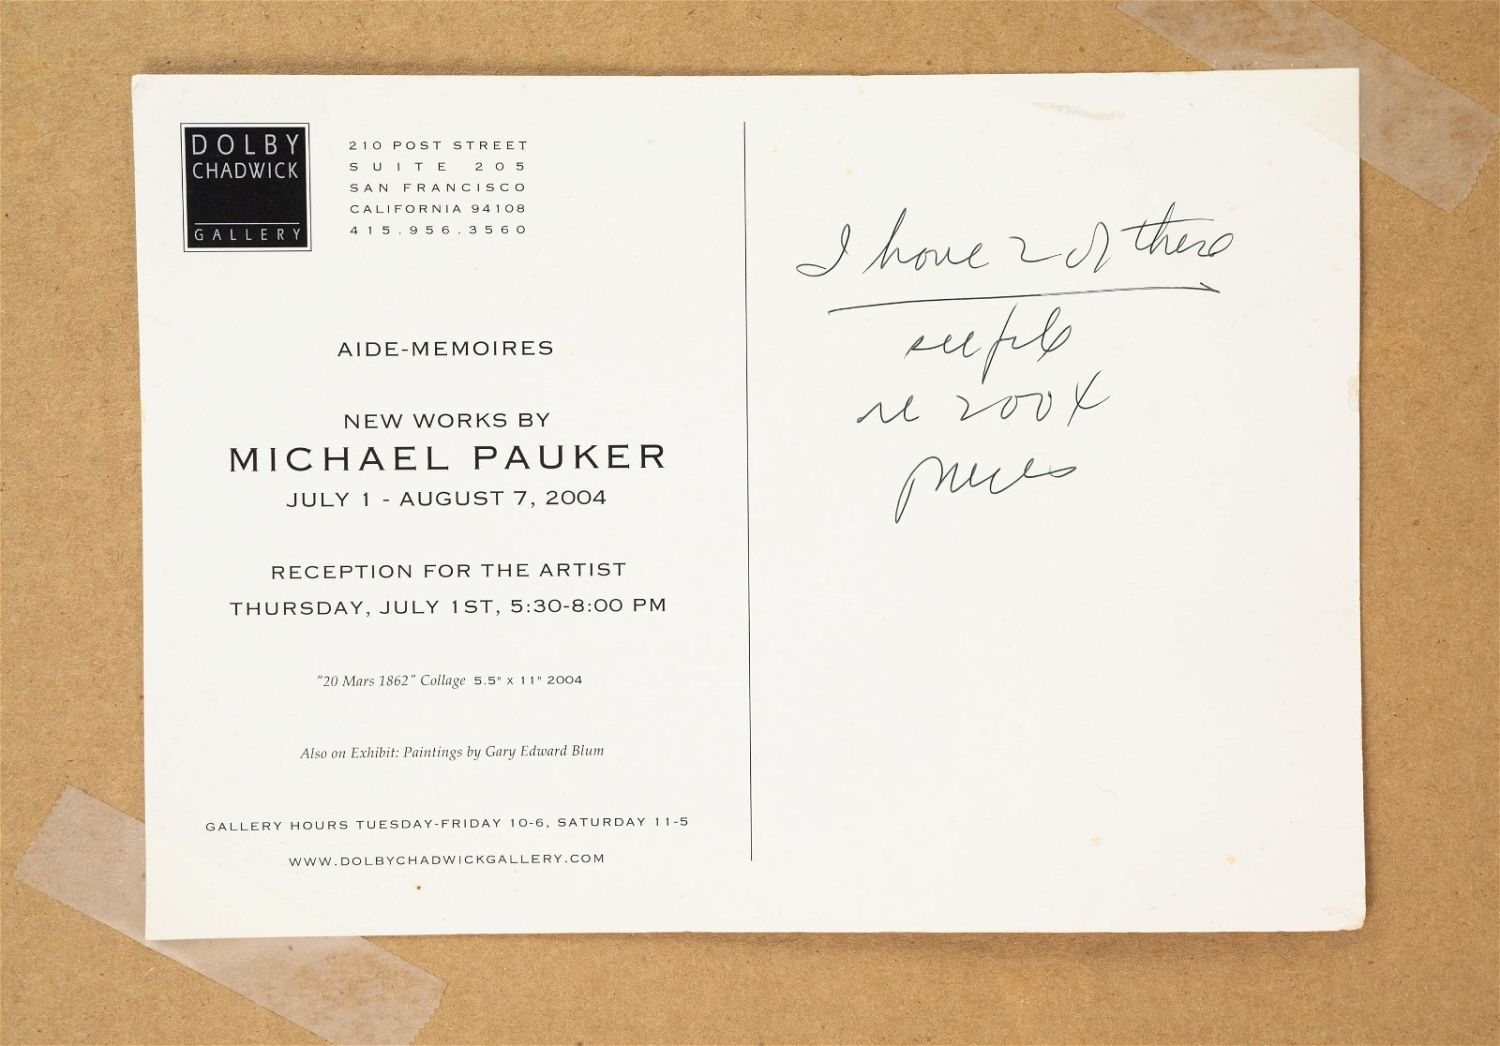 DOLBY
CHADWICK
GALLERY
210 POST STREET
SUITE 205
SAN FRANCISCO
CALIFORNIA 94108
415.956.3560
AIDE-MEMOIRES
NEW WORKS BY
MICHAEL PAUKER
JULY 1 - AUGUST 7, 2004
RECEPTION FOR THE ARTIST
THURSDAY, JULY 1ST, 5:30-8:00 PM
"20 Mars 1862" Collage 5.5" x 11" 2004
Also on Exhibit: Paintings by Gary Edward Blum
GALLERY HOURS TUESDAY-FRIDAY 10-6, SATURDAY 11-5
WWW.DOLBYCHADWICKGALLERY.COM
I have 2 of these
see file
re 2004
pieces